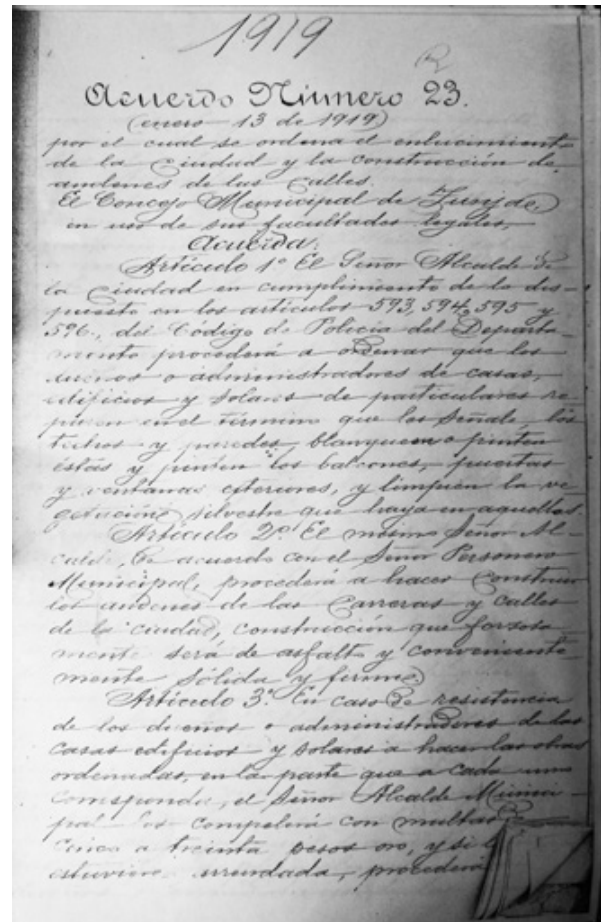 1919
Acuerdo Número 23.
(enero 13 de 1919)
por el cual se ordena el enlucimiento
de la Ciudad y la construcción de
andenes de las Calles.
El Concejo Municipal de Tunja
en uso de sus facultades legales,
Acuerda:
Artículo 1º El Señor Alcalde de
la Ciudad en cumplimiento de lo dis-
puesto en los artículos 593, 594, 595 y
596., del Código de Policía del Departa-
mento procederá a ordenar que los
dueños o administradores de casas,
edificios y solares de particulares re-
paren en el término que les señale, los
techos y paredes, blanqueen o pinten
éstas y pinten los balcones, puertas
y ventanas exteriores, y limpien la ve-
getación silvestre que haya en aquellos.
Artículo 2º El mismo Señor Al-
calde, de acuerdo con el Señor Personero
Municipal, procederá a hacer construir
los andenes de las Carreras y calles
de la ciudad, construcción que forzosa-
mente será de asfalto y conveniente-
mente sólida y firme.
Artículo 3º En caso de resistencia
de los dueños o administradores de las
casas edificios y solares a hacer las obras
ordenadas, en la parte que a cada uno
corresponda, el Señor Alcalde Munici-
pal los compelerá con multas
cinco a treinta pesos oro, y si
estuviere arrendada, procederá